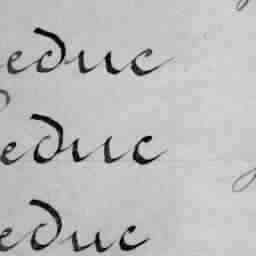 educ
educ
educ